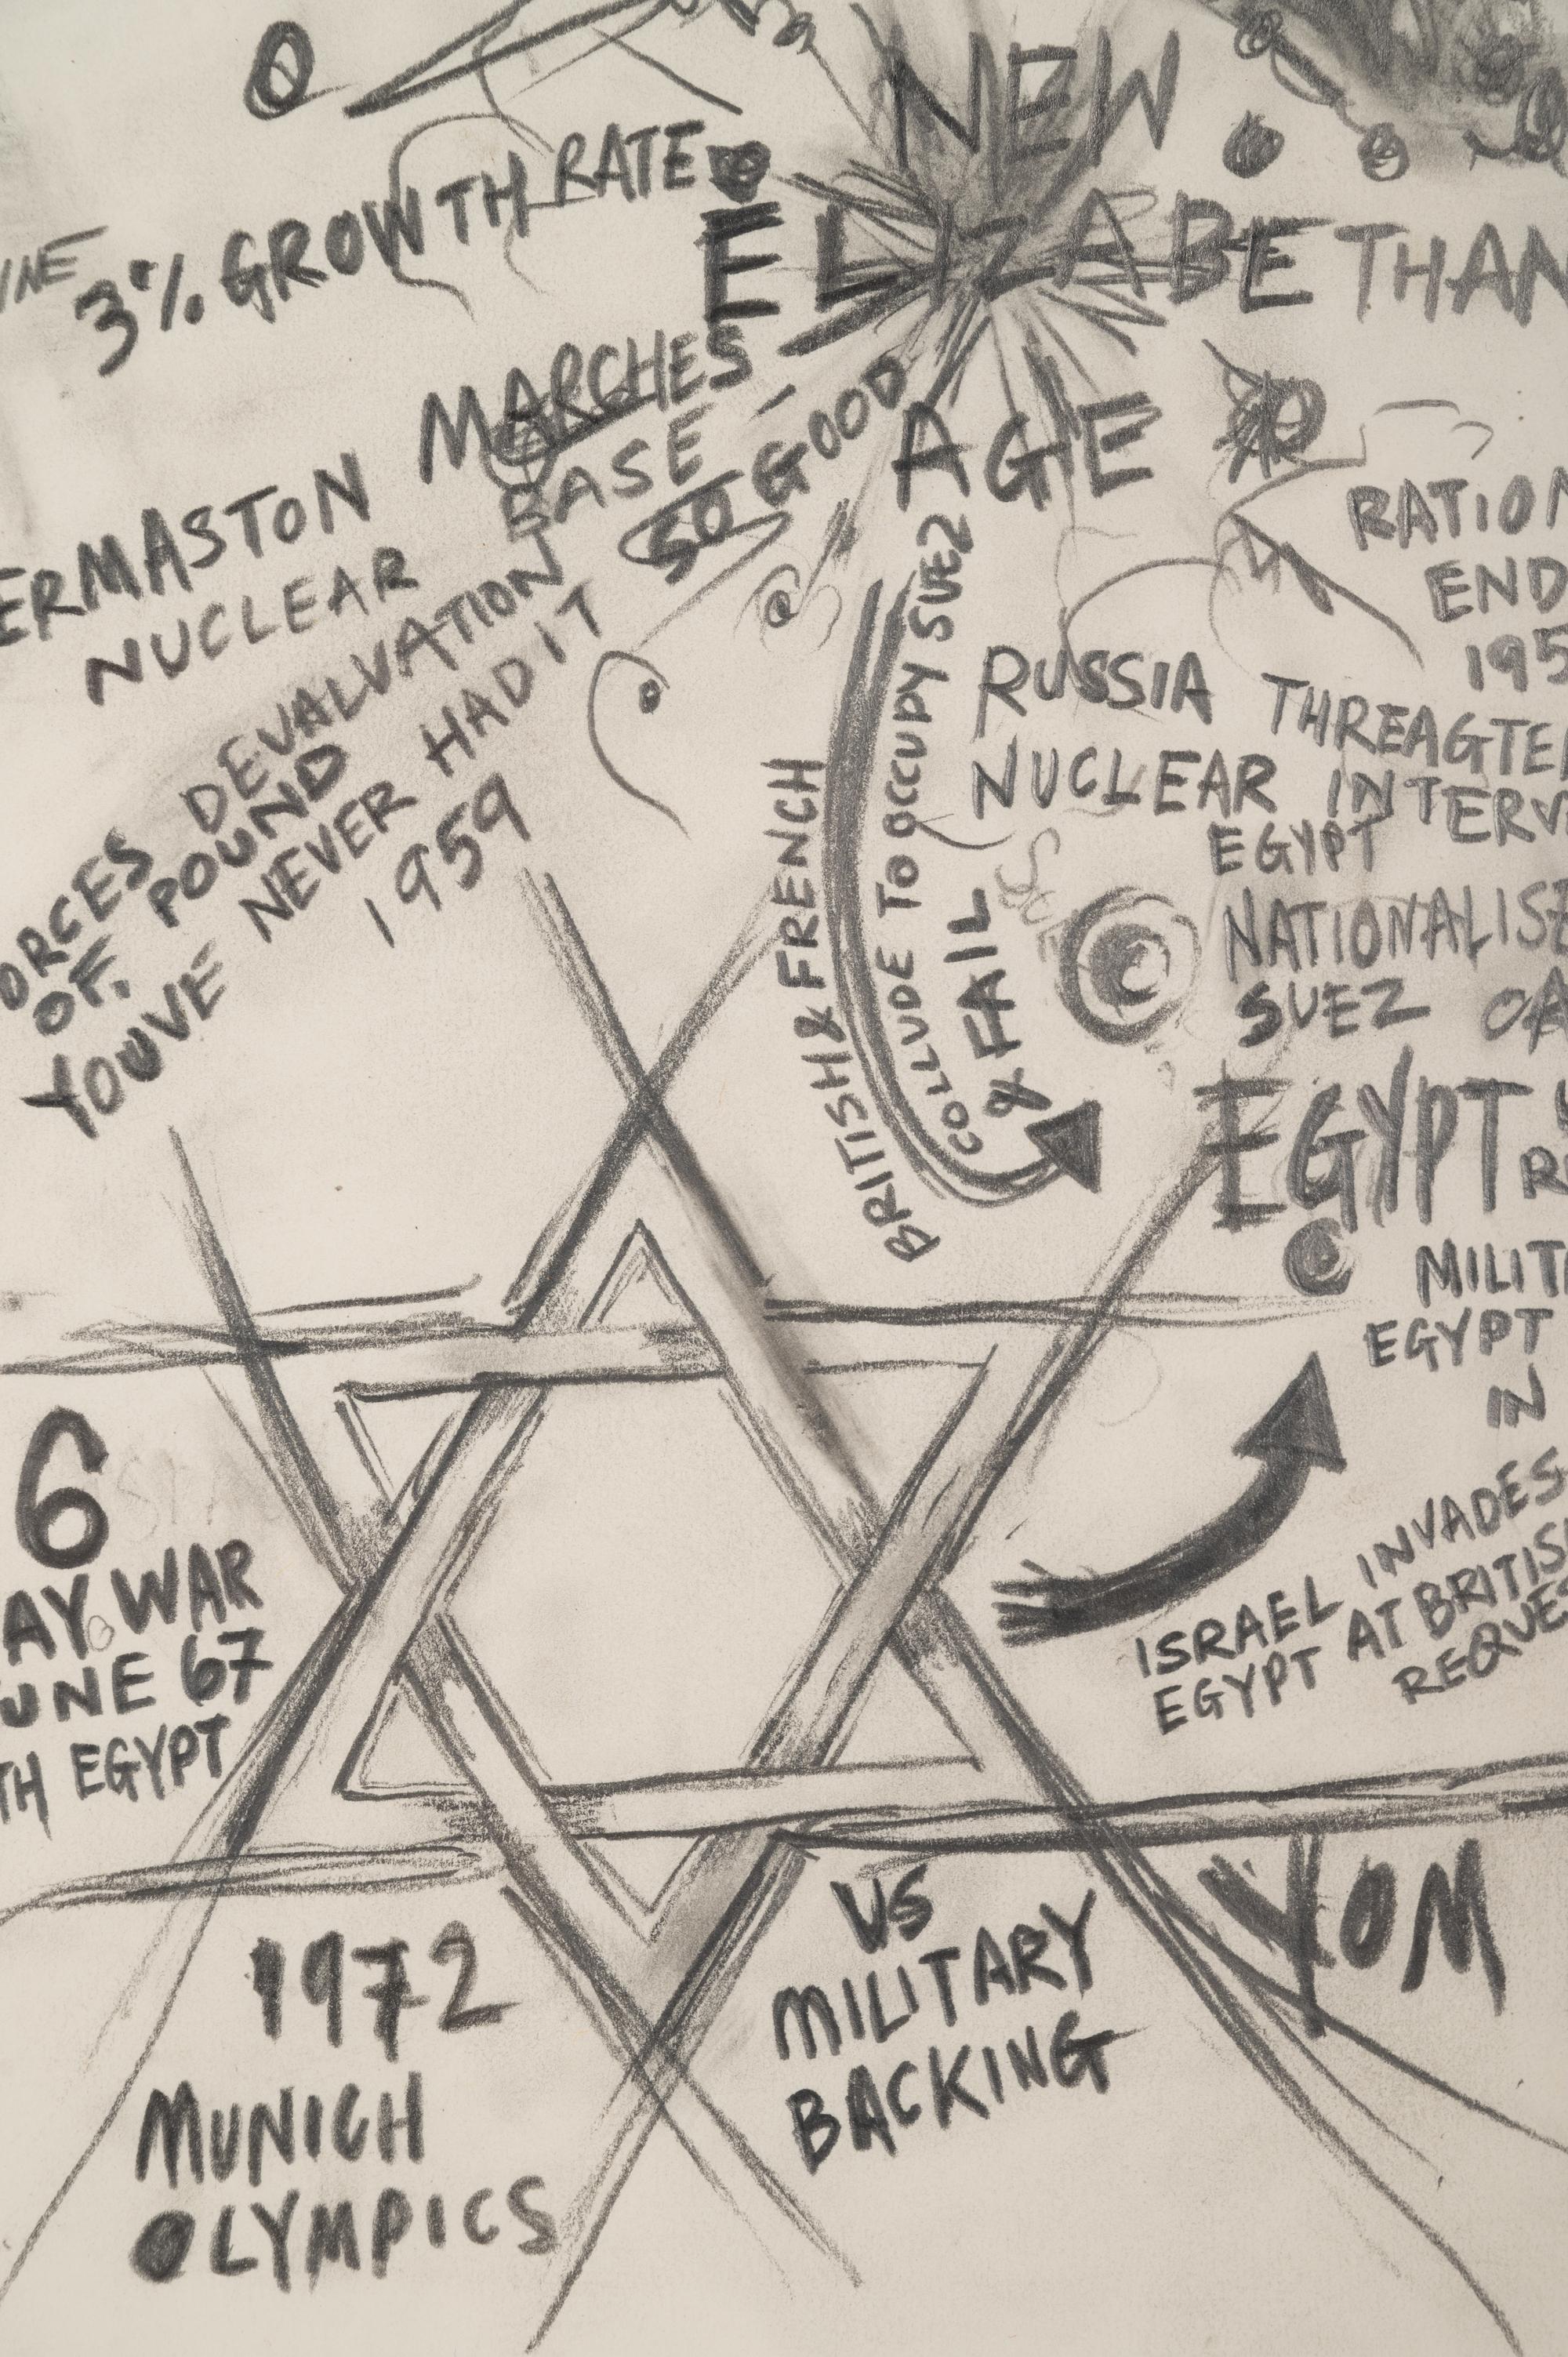 NEW
ELIZABETHAN
AGE
3% GROWTH RATE
ERMASTON MARCHES
NUCLEAR BASE
ORCES DEVALVATION
OF. POUND
YOUVE NEVER HAD IT SO GOOD
1959
RATION
END
195
RUSSIA THREAGTE
NUCLEAR INTERV
EGYPT
NATIONALISE
SUEZ CA
BRITISH & FRENCH
COLLUDE TO OCCUPY SUEZ
& FAIL
EGYPT
MILITA
EGYPT
IN
ISRAEL INVADES
EGYPT AT BRITISH
REQUES
6
AY WAR
UNE 67
TH EGYPT
YOM
US
MILITARY
BACKING
1972
MUNICH
OLYMPICS